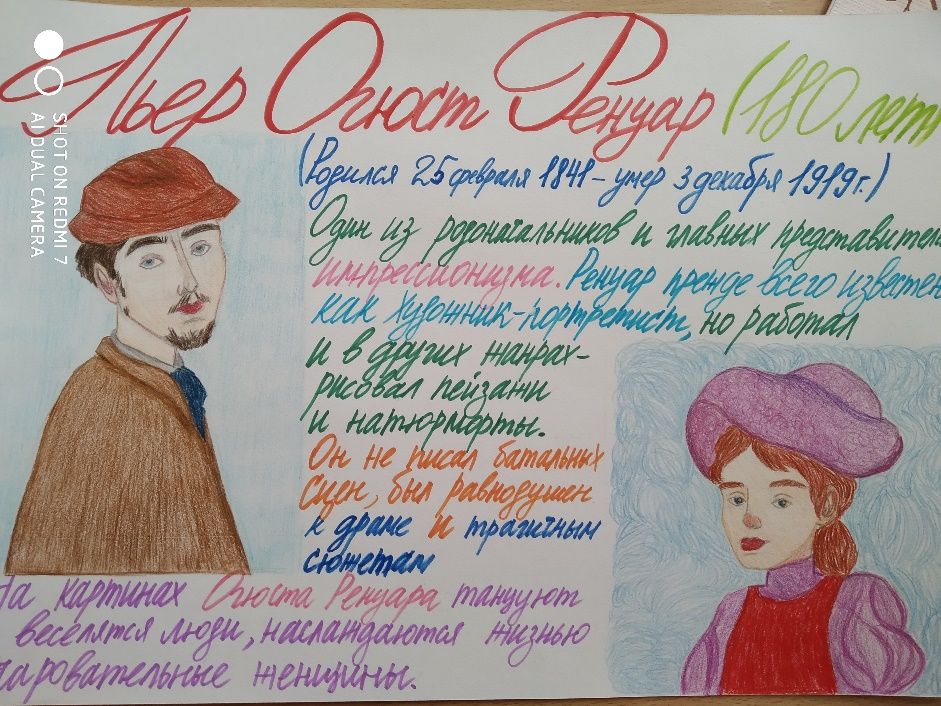 Пьер Огюст Ренуар (180 лет
(Родился 25 февраля 1841 - умер 3 декабря 1919г.)
Один из родоначальников и главных представител
импрессионизма. Ренуар прежде всего известен
как художник-портретист, но работал
и в других жанрах-
рисовал пейзажи
и натюрморты.
Он не писал батальных
сцен, был равнодушен
к драме и трагичным
сюжетам
На картинах Огюста Ренуара танцуют
веселятся люди, наслаждаются жизнью
чаровательные женщины.
SHOT ON REDMI 7
AI DUAL CAMERA